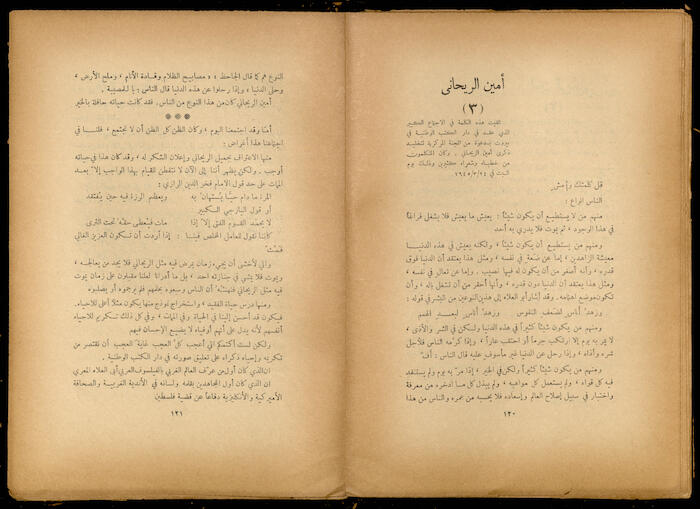 أمين الريحاني
(٣)
ألقيت هذه الكلمة في الاجتماع الكبير
الذي عقد في دار الكتب الوطنية في
بيروت بدعوة من اللجنة المركزية لتخليد
ذكرى أمين الريحاني . وكان المتكلمون
من خطباء وشعراء كثيرين وذلك يوم
السبت في ٢٤/٣/١٩٤٥
قل كلمتك وامش
الناس انواع :
منهم من لا يستطيع أن يكون شيئاً : يعيش ما يعيش فلا يشغل فراغاً
في هذا الوجود ، ثم يموت فلا يدري به أحد
ومنهم من يستطيع أن يكون شيئاً ، ولكنه يعيش في هذه الدنيا
معيشة الزاهدين ؛ إما عن ضعة في نفسه ، ومثل هذا يعتقد أن الدنيا فوق
قدره ، وأنه أصغر من أن يكون له فيها نصيب . وإما عن تعال في نفسه ،
ومثل هذا يعتقد أن الدنيا دون قدره ، وأنها أحقر من أن تشغل باله ، وأن
تكون موضع اهتمامه . وقد أشار أبو العلاء إلى هذين النوعين من البشر في قوله :
وزهد أناس لضعف النفوس وزهد أناس لبعد الهمم
ومنهم من يكون شيئاً كثيراً في هذه الدنيا ولكن في الشر والأذى ،
لا يمر به يوم إلا ارتكب جرماً أو احتقب عاراً ، وإذا كرمه الناس فلأجل
شره وأذاه ، وإذا رحل عن الدنيا غير مأسوف عليه قال الناس : أف !
ومنهم من يكون شيئاً كثيراً ولكن في الخير ، إذا مر به يوم ولم يستنفد
فيه كل قواه ، ولم يستعمل كل مواهبه ، ولم يبذل كل ما ادخره من معرفة
واختبار في سبيل إصلاح العالم وإسعاده فلا يحسبه من عمره والناس من هذا
١٢٠
النوع هم كما قال الجاحظ ، « مصابيح الظلام وقادة الأنام ، وملح الأرض ،
وحلي الدنيا » وإذا رحلوا عن هذه الدنيا قال الناس : يا للمصيبة .
أمين الريحاني كان من هذا النوع من الناس . فقد كانت حياته حافلة بالخير
* * *
أما وقد اجتمعنا اليوم ، وكان الظن كل الظن أن لا نجتمع ، فلنا في
اجتماعنا هذا أغراض :
منها الاعتراف بجميل الريحاني وإعلان الشكر له ، وقد كان هذا في حياته
أوجب . ولكن يظهر أننا إلى الآن لا نستفطن للقيام بهذا الواجب إلا بعد
الممات على حد قول الامام فخر الدين الرازي :
المرء ما دام حياً يستهان به ويعظم الرزء فيه حين يفتقد
أو قول البارجي الكبير
لا يحمد القوم الفتى إلا إذا مات فيعطى حقه تحت الثرى
كأننا نقول للعامل المخلص فينا : إذا أردت أن تكون العزيز الغالي
فمت
وإني لأخشى أن يجيء زمان يمرض فيه مثل الريحاني فلا يجد من يعالجه ،
ويموت فلا يمشي في جنازته أحد ، بل ما أدرانا لعلنا مقبلون على زمان يموت
فيه مثل الريحاني
ومنها درس حياة الفقيد ، واستخراج نموذج منها يكون مثلاً أعلى للأحياء
فيكون قد أحسن إلينا في الحياة وفي الممات ، وفي كل ذلك تكريم للاحياء
أنفسهم لأنه يدل على أنهم أوفياء لا يضيع الإحسان فيهم
ولكن لست أكتمكم اني أعجب كل العجب غاية العجب أن نقتصر من
تكريمه وإحياء ذكراه على تعليق صورته في دار الكتب الوطنية .
ان الذي كان أول من عرف العالم الغربي بالفيلسوف العربي أبي العلاء المعري
ان الذي كان أول المجاهدين بقلمه ولسانه في الأندية الغربية والصحافة
الأميركية والانكليزية دفاعاً عن قضية فلسطين
١٢١